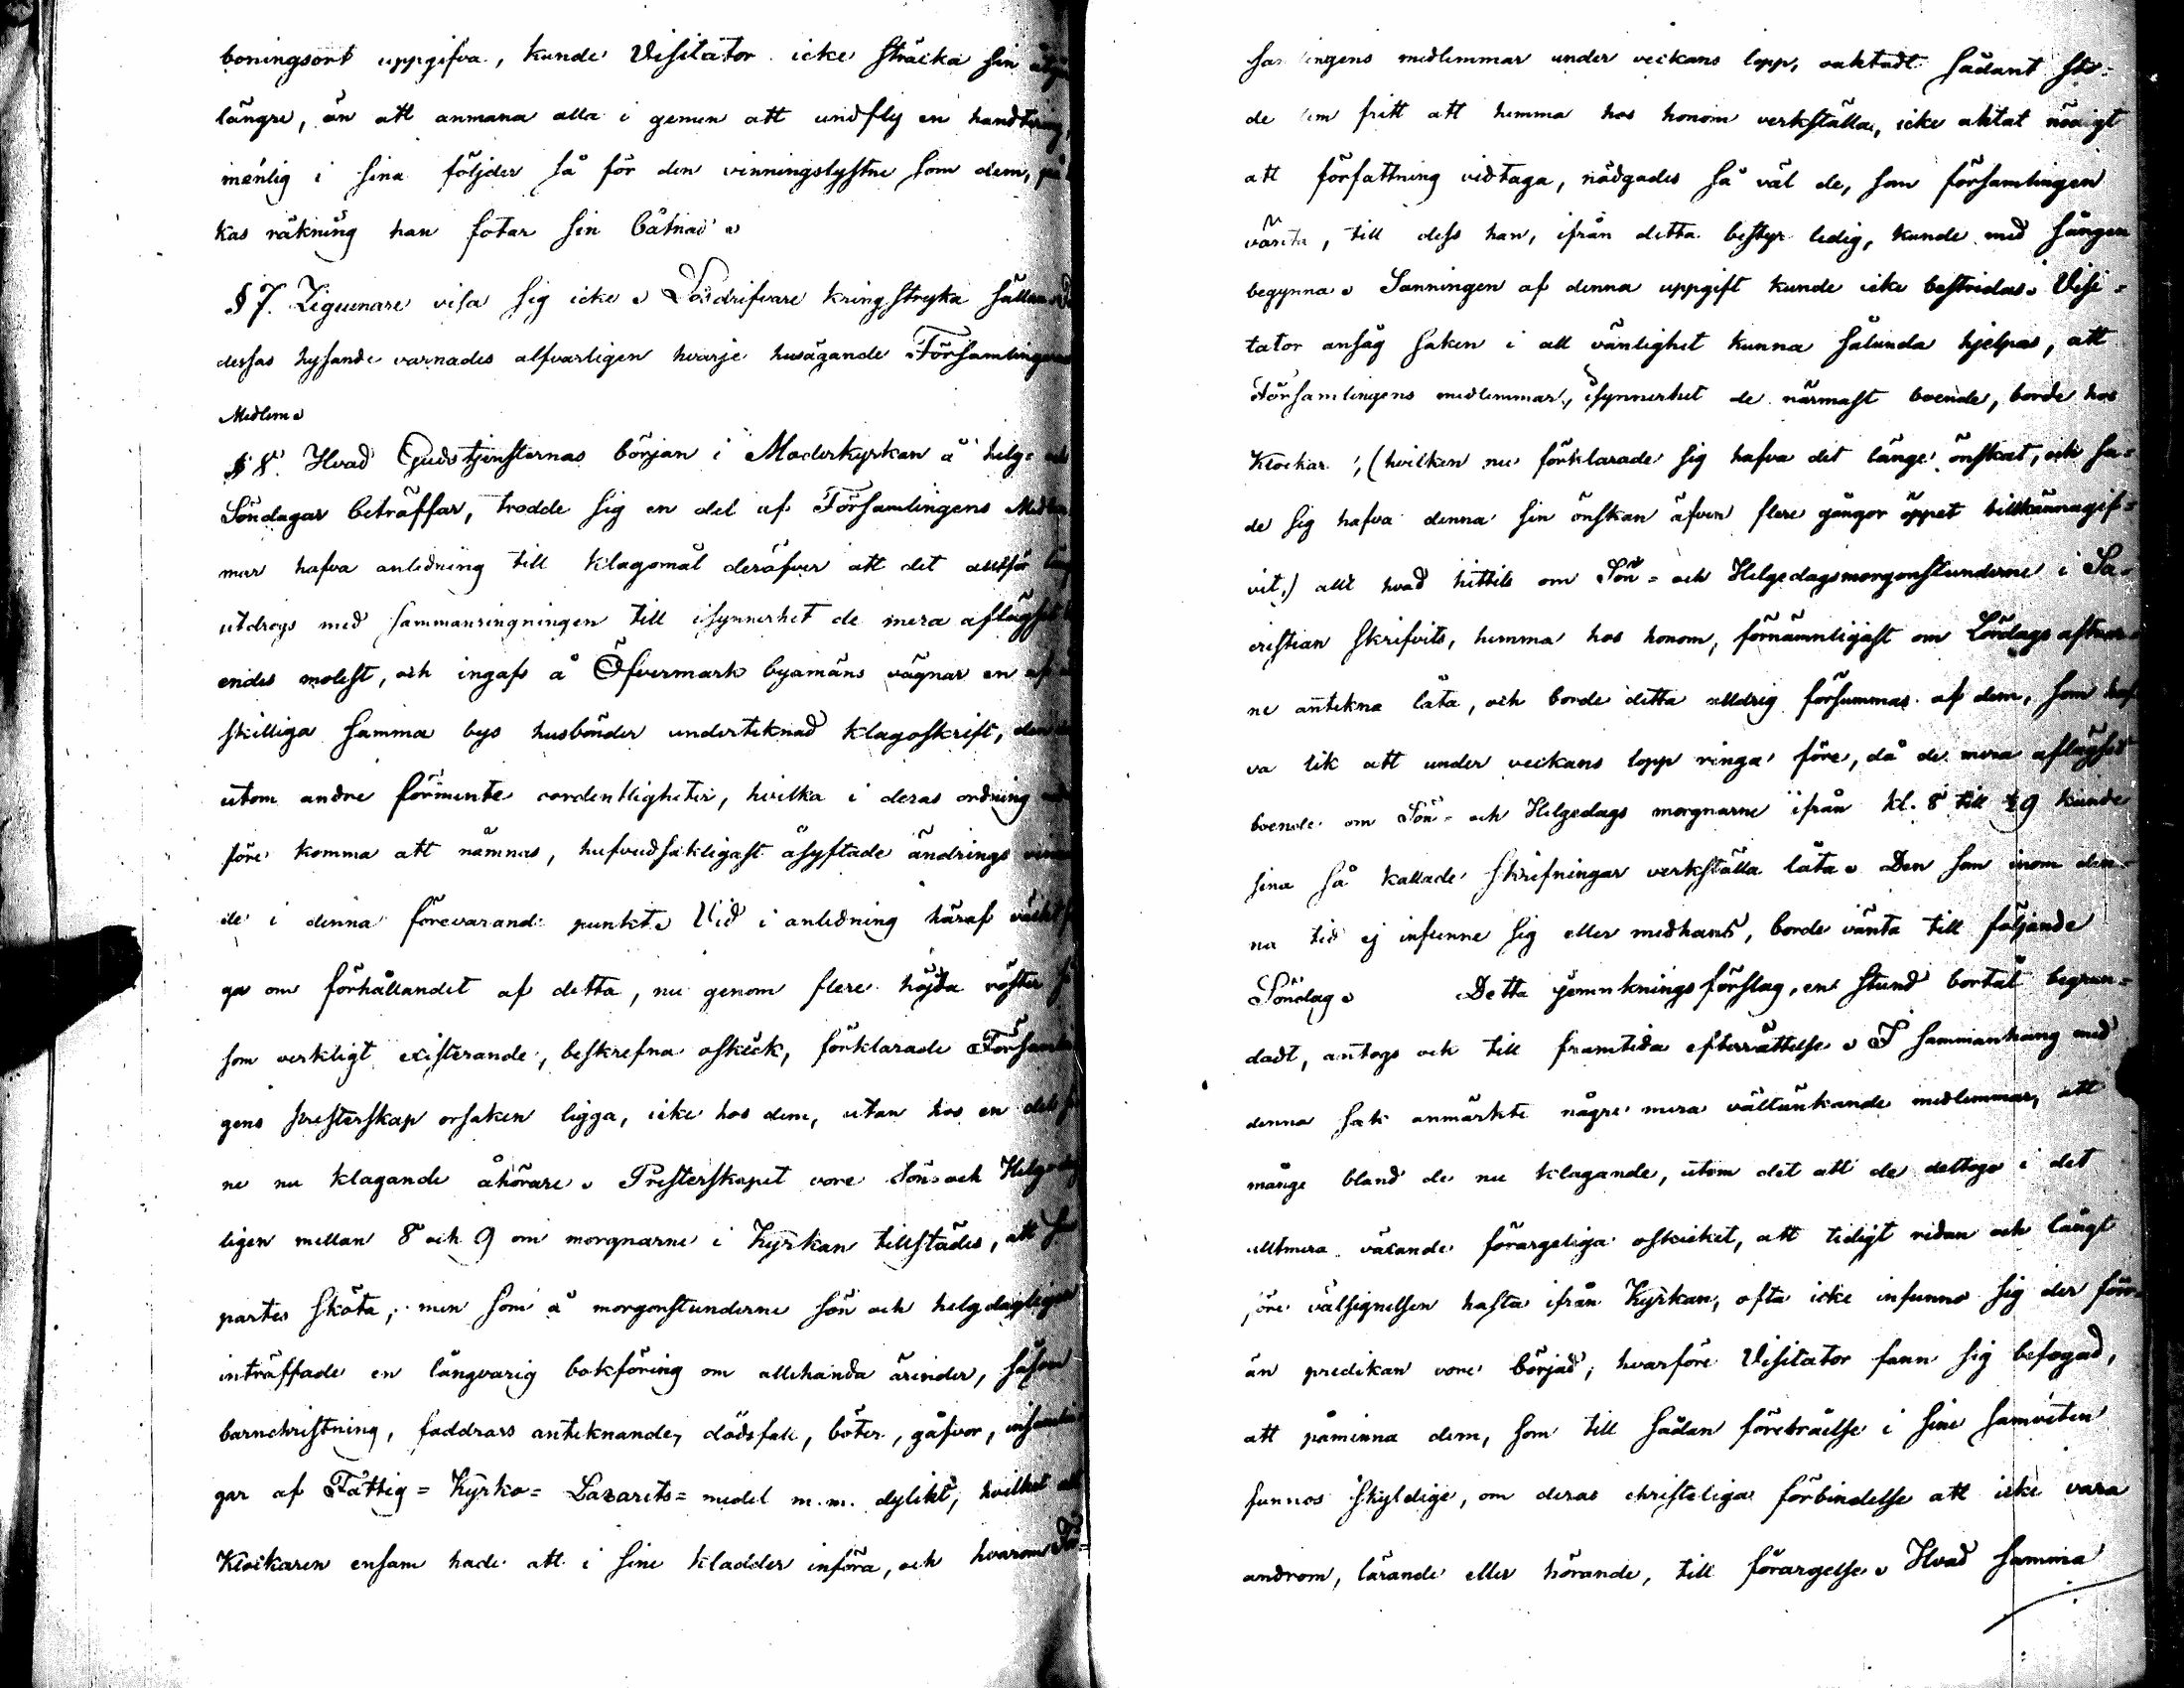 boningsort uppgifva, kunde Visitator icke sträcka sin
längre, än att anmana alla i gemen att undfly en handtering,
menlig i sina följder så för den vinningslystne som dem, på
kas räkning han fotar sin båtnad.
§ 7. Ziguenare visa sig icke. Lösdrifvare kringstryka sällan
dessas hysande varnades alfvarligen hvarje husägande Församlingens
Medlem.
§ 8. Hvad Gudstjensternas början i Moderkyrkan å helg- och
Söndagar beträffar, trodde sig en del af Församlingens Medlem
mar hafva anledning till klagomål deröfver att det alltför
utdrogs med sammanringningen till isynnerhet de mera aflägset
endes molest, och ingafs å Öfvermark byamäns vägnar en af
skilliga samma bys husbönder underteknad klagoskrift, den
utom andre förmente oordentligheter, hvilka i deras ordning
före komma att nämnas, hufvudsakligast åsyftade ändrings
de i denna förevarande punkt. Vid i anledning häraf väckt
ga om förhållandet af detta, nu genom flere höjda röster
som verkligt existerande, beskrefna oskick, förklarade Försam
gens Presterskap orsaken ligga, icke hos dem, utan hos en del
ne nu klagande åhörare. Presterskapet vore Sön- och Helgedag
ligen mellan 8 och 9 om morgnarne i Kyrkan tillstädes, att
partes sköta; men som å morgonstunderne sön och helgdagligen
inträffade en långvarig bokföring om allehanda ärender, såsom
barnchristning, faddrars anteknande, dödsfall, böter, gåfvor, insamlin
gar af Fattig- Kyrko- Lazarets- medel m.m. dylikt, hvilket allt
Klockaren ensam hade att i sine kladder införa, och hvarom För-
samlingens medlemmar under veckans lopp, oaktadt sådant stå-
de dem fritt att hemma hos honom verkställa, icke aktat nödigt
att författning vidtaga, nödgades så väl de, som församlingen
vänta, till dess han, ifrån detta bestyr ledig, kunde med sången
begynna. Sanningen af denna uppgift kunde icke bestridas. Visi-
tator ansåg saken i all vänlighet kunna sålunda hjelpas, att
Församlingens medlemmar, isynnerhet de närmast boende, borde hos
Klockar, (hvilken nu förklarade sig hafva det länge önskat, och sa-
de sig hafva denna sin önskan äfven flere gångor öppet tillkännagif-
vit,) allt hvad hittils om Sön- och Helgedagsmorgonstunderne i Sa-
cristian skrifvits, hemma hos honom, förnämnligast om Lördags aftnar-
ne antekna låta, och borde detta alldrig försummas af dem, som haf-
va lik att under veckans lopp ringa före, då de mera aflägset
boende om Sön- och Helgedags morgnarne ifrån kl. 8 till ½ 9 kunde
sina så kallade skrifningar verkställa låta. Den som inom den-
na tid ej infunne sig eller medhans, borde vänta till följande
Söndag. Detta jemnkningsförslag, en stund bortåt begrun-
dadt, antogs och till framtida efterrättelse. I sammanhang med
denna sak anmärkte någre mera vältänkande medlemmar, att
månge bland de nu klagande, utom det att de deltoge i det
alltmera växande förargeliga oskicket, att tidigt redan och långt
före välsignelsen hasta ifrån Kyrkan, ofta icke infunno sig der förr
än predikan vore börjad; hvarföre Visitator fann sig befogad,
att påminna dem, som till sådan förebråelse i sine samveten
funnos skyldige, om deras christeliga förbindelse att icke vara
androm, lärande eller hörande, till förargelse. Hvad samma